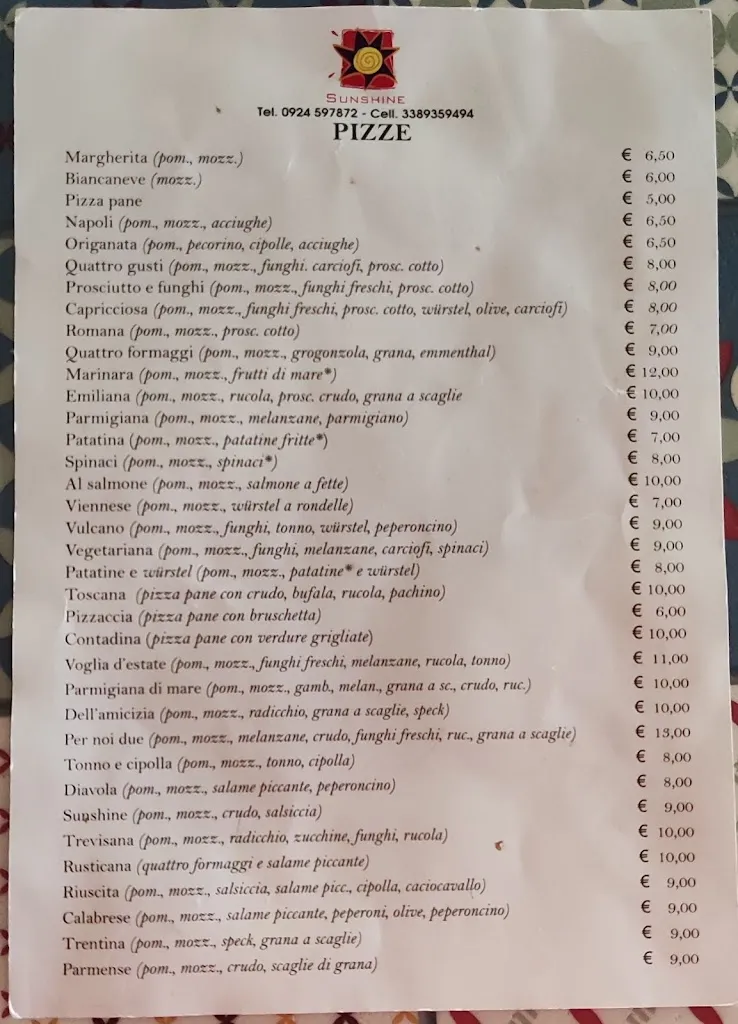 SUNSHINE
Tel. 0924 597872 - Cell. 3389359494
PIZZE
Margherita (pom., mozz.) € 6,50
Biancaneve (mozz.) € 6,00
Pizza pane € 5,00
Napoli (pom., mozz., acciughe) € 6,50
Origanata (pom., pecorino, cipolle, acciughe) € 6,50
Quattro gusti (pom., mozz., funghi. carciofi, prosc. cotto) € 8,00
Prosciutto e funghi (pom., mozz., funghi freschi, prosc. cotto) € 8,00
Capricciosa (pom., mozz., funghi freschi, prosc. cotto, würstel, olive, carciofi) € 8,00
Romana (pom., mozz., prosc. cotto) € 7,00
Quattro formaggi (pom., mozz., grogonzola, grana, emmenthal) € 9,00
Marinara (pom., mozz., frutti di mare*) € 12,00
Emiliana (pom., mozz., rucola, prosc. crudo, grana a scaglie € 10,00
Parmigiana (pom., mozz., melanzane, parmigiano) € 9,00
Patatina (pom., mozz., patatine fritte*) € 7,00
Spinaci (pom., mozz., spinaci*) € 8,00
Al salmone (pom., mozz., salmone a fette) € 10,00
Viennese (pom., mozz., würstel a rondelle) € 7,00
Vulcano (pom., mozz., funghi, tonno, würstel, peperoncino) € 9,00
Vegetariana (pom., mozz., funghi, melanzane, carciofi, spinaci) € 9,00
Patatine e würstel (pom., mozz., patatine* e würstel) € 8,00
Toscana (pizza pane con crudo, bufala, rucola, pachino) € 10,00
Pizzaccia (pizza pane con bruschetta) € 6,00
Contadina (pizza pane con verdure grigliate) € 10,00
Voglia d'estate (pom., mozz., funghi freschi, melanzane, rucola, tonno) € 11,00
Parmigiana di mare (pom., mozz., gamb., melan., grana a sc., crudo, ruc.) € 10,00
Dell'amicizia (pom., mozz., radicchio, grana a scaglie, speck) € 10,00
Per noi due (pom., mozz., melanzane, crudo, funghi freschi, ruc., grana a scaglie) € 13,00
Tonno e cipolla (pom., mozz., tonno, cipolla) € 8,00
Diavola (pom., mozz., salame piccante, peperoncino) € 8,00
Sunshine (pom., mozz., crudo, salsiccia) € 9,00
Trevisana (pom., mozz., radicchio, zucchine, funghi, rucola) € 10,00
Rusticana (quattro formaggi e salame piccante) € 10,00
Riuscita (pom., mozz., salsiccia, salame picc., cipolla, caciocavallo) € 9,00
Calabrese (pom., mozz., salame piccante, peperoni, olive, peperoncino) € 9,00
Trentina (pom., mozz., speck, grana a scaglie) € 9,00
Parmense (pom., mozz., crudo, scaglie di grana) € 9,00